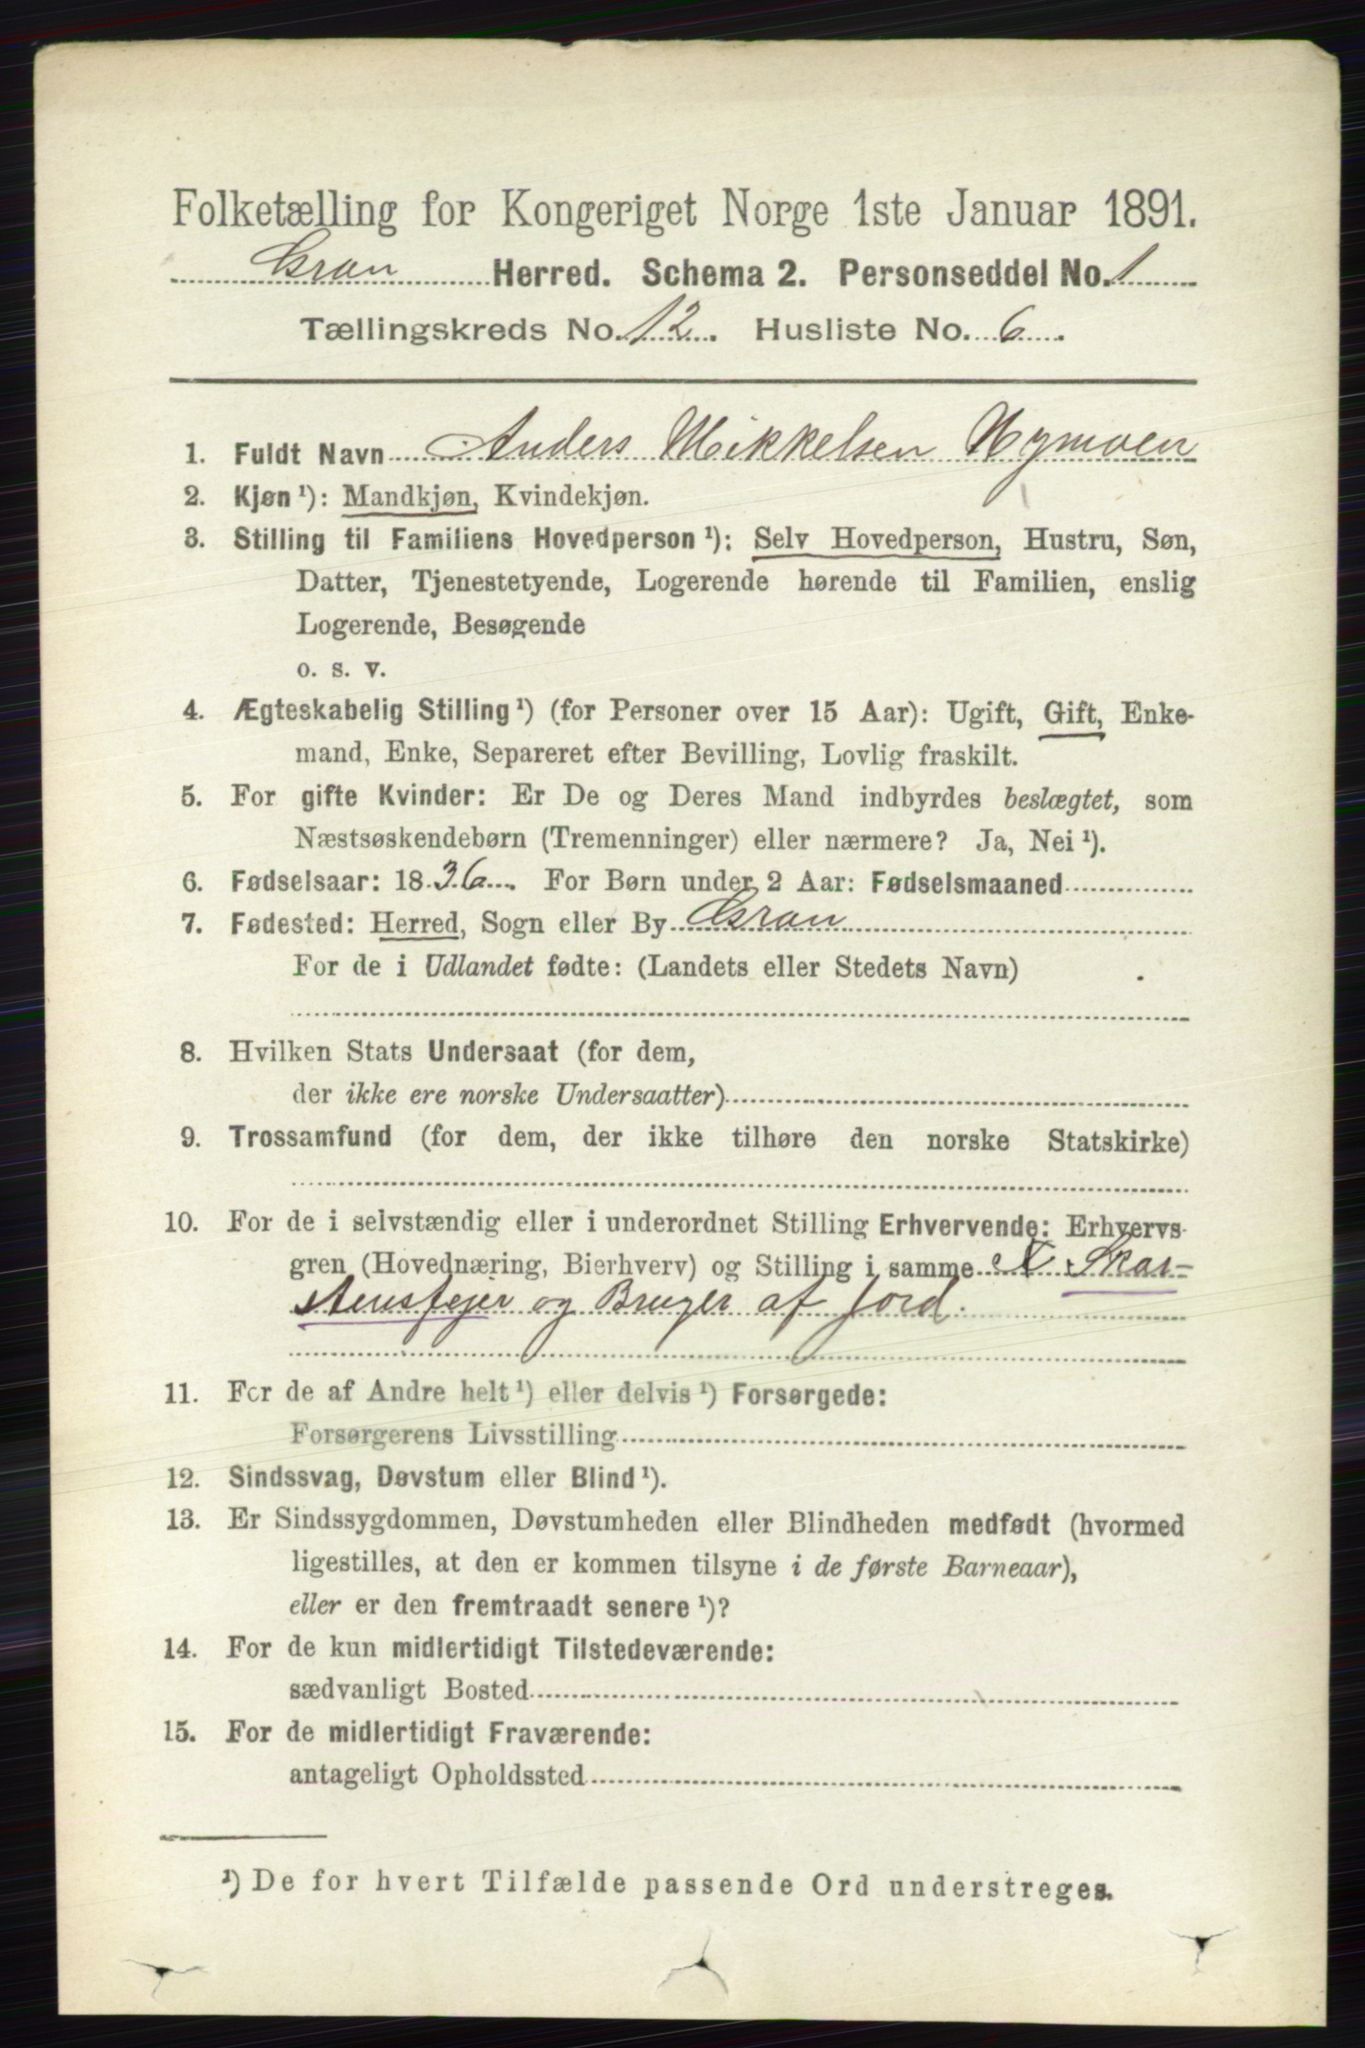 Folketælling for Kongeriget Norge 1ste Januar 1891.
Gran Herred. Schema 2. Personseddel No. 1
Tællingskreds No. 12. Husliste No. 6.
1. Fuldt Navn Anders Mikkelsen Nymoen
2. Kjøn ¹): Mandkjøn, Kvindekjøn.
3. Stilling til Familiens Hovedperson ¹): Selv Hovedperson, Hustru, Søn,
Datter, Tjenestetyende, Logerende hørende til Familien, enslig
Logerende, Besøgende
o. s. v.
4. Ægteskabelig Stilling ¹) (for Personer over 15 Aar): Ugift, Gift, Enke-
mand, Enke, Separeret efter Bevilling, Lovlig fraskilt.
5. For gifte Kvinder: Er De og Deres Mand indbyrdes beslægtet, som
Næstsøskendebørn (Tremenninger) eller nærmere? Ja, Nei ¹).
6. Fødselsaar: 1836. For Børn under 2 Aar: Fødselsmaaned
7. Fødested: Herred, Sogn eller By Gran
For de i Udlandet fødte: (Landets eller Stedets Navn)
8. Hvilken Stats Undersaat (for dem,
der ikke ere norske Undersaatter)
9. Trossamfund (for dem, der ikke tilhøre den norske Statskirke)
10. For de i selvstændig eller i underordnet Stilling Erhvervende: Erhvervs-
gren (Hovednæring, Bierhverv) og Stilling i samme X Skor-
stensfejer og Bruger af Jord.
11. For de af Andre helt ¹) eller delvis ¹) Forsørgede:
Forsørgerens Livsstilling
12. Sindssvag, Døvstum eller Blind ¹).
13. Er Sindssygdommen, Døvstumheden eller Blindheden medfødt (hvormed
ligestilles, at den er kommen tilsyne i de første Barneaar),
eller er den fremtraadt senere ¹)?
14. For de kun midlertidigt Tilstedeværende:
sædvanligt Bosted
15. For de midlertidigt Fraværende:
antageligt Opholdssted
¹) De for hvert Tilfælde passende Ord understreges.